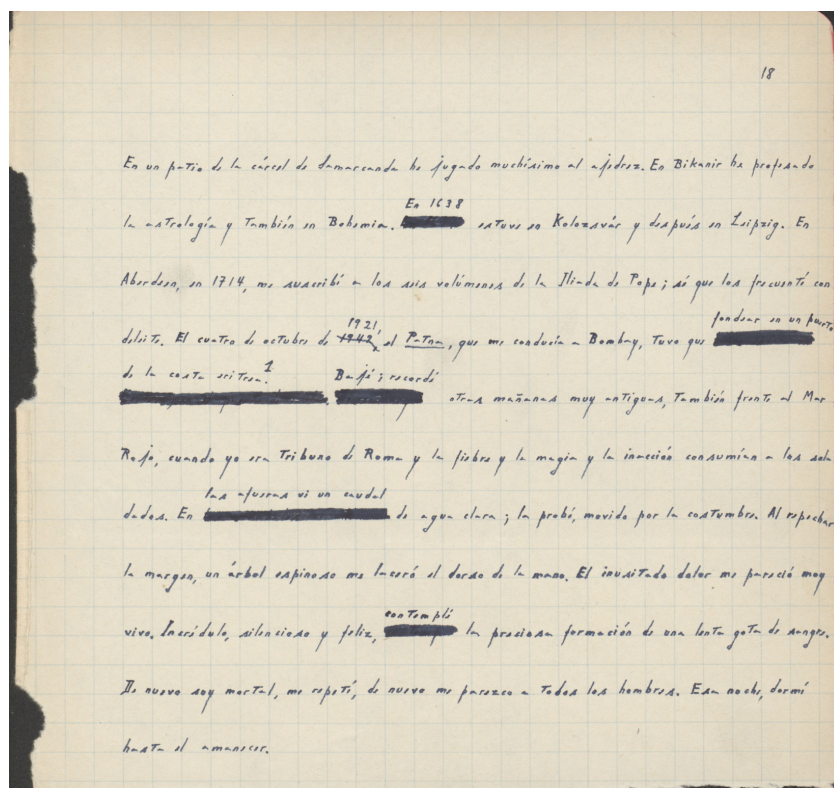 18
En un patio de la cárcel de Samarcanda he jugado muchísimo al ajedrez. En Bikanir he profesado
En 1638
la astrología y también en Bohemia. estuve en Kolozsvár y después en Leipzig. En
Aberdeen, en 1714, me suscribí a los seis volúmenes de la Ilíada de Pope; sé que los frecuenté con
1921, fondear en un puerto
deleite. El cuatro de octubre de 1942, el Patna, que me conducía a Bombay, tuvo que
de la costa eritrea.1 Bajé; recordé
otras mañanas muy antiguas, también frente al Mar
Rojo, cuando yo era tribuno de Roma y la fiebre y la magia y la inacción consumían a los sol
las afueras vi un caudal
dados. En de agua clara; la probé, movido por la costumbre. Al repechar
la margen, un árbol espinoso me laceró el dorso de la mano. El inusitado dolor me pareció muy
contemplé
vivo. Incrédulo, silencioso y feliz, la preciosa formación de una lenta gota de sangre.
De nuevo soy mortal, me repetí, de nuevo me parezco a todos los hombres. Esa noche, dormí
hasta el amanecer.